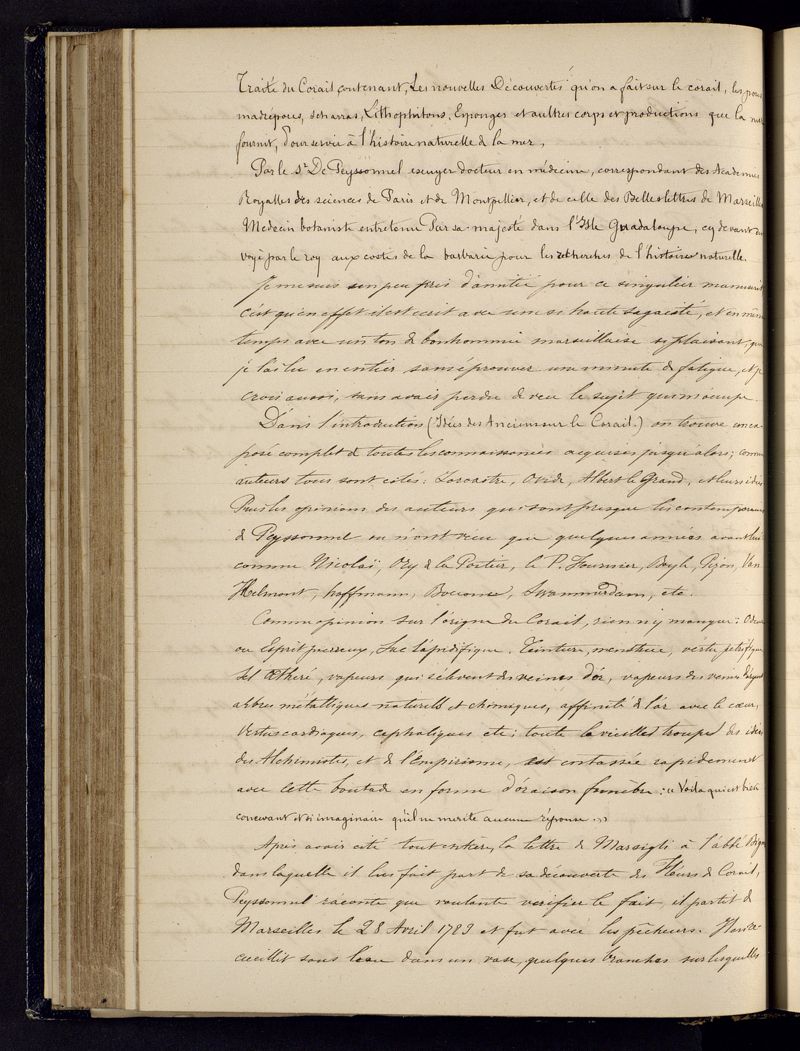 Traité du Corail contenant, Les nouvelles Découvertes qu'on a fait sur le corail, les pores
madrépores, scharras, Lithophitons, Eponges et aultres corps et productions que la mer
fournit, Pour servir à l'histoire naturelle de la mer.
Par le Sr De Peyssonnel escuyer docteur en médecine, correspondant des Academies
Royalles des sciences de Paris et de Montpellier, et de celle des Belles lettres de Marseille
Medecin botaniste entretenu Par sa majesté dans l'Isle Guadaloupe, cy devant en
voyé par le roy aux costes de la barbarie pour les recherches de l'histoire naturelle.
Je me suis un peu pris d'amitié pour ce singulier manuscrit
c'est qu'en effet il est écrit avec une si haute sagacité, et en même
temps avec un ton de bonhommie marseillaise si plaisant, que
je l'ai lu en entier sans éprouver une minute de fatigue, et je
crois aussi, sans avoir perdu de vue le sujet qui m'occupe.
Dans l'introduction (Idées des Anciens sur le Corail.) on trouve un ex
posé complet de toutes les connaissances acquises jusqu'alors;
auteurs tous sont cités: Zoroastre, Ovide, Albert le Grand, et leurs idées
Puis les opinions des auteurs qui sont presque les contemporains
de Peyssonnel ou n'ont vécu que quelques années avant lui
comme Nicolaï, Ory de la Poitier, le P. Fournier, Boyle, Pizon, Van
Helmont, hoffmann, Boccone, Swammerdam, etc.
Comme opinion sur l'origine du Corail, rien n'y manque:
ou Esprit pierreux, Suc lapidifique, Teinture, menstrue, vertu pétrifique
Sel æthéré, vapeurs qui s'élèvent des veines d'or, vapeurs des veines d'argent
arbres métalliques naturels et chimiques, affinité de l'or avec le cœur,
Vertus cardiaques, cephaliques etc; toute la vieille troupe des idées
des Alchimistes, et de l'Empirisme, est entassée rapidement
avec cette boutade en forme d'oraison funèbre: « Voila qui est bien
concevant et si imaginaire qu'il ne merite aucune réponse »
Après avoir cité tout entière, la lettre de Marsigli à l'abbé Bign
dans laquelle il lui fait part de sa découverte des Fleurs de Corail,
Peyssonnel raconte que voulant vérifier le fait, il partit de
Marseilles le 28 Avril 1723 et fut avec les pêcheurs. Il en re-
cueillit sous l'eau dans un vase, quelques branches sur lesquelles